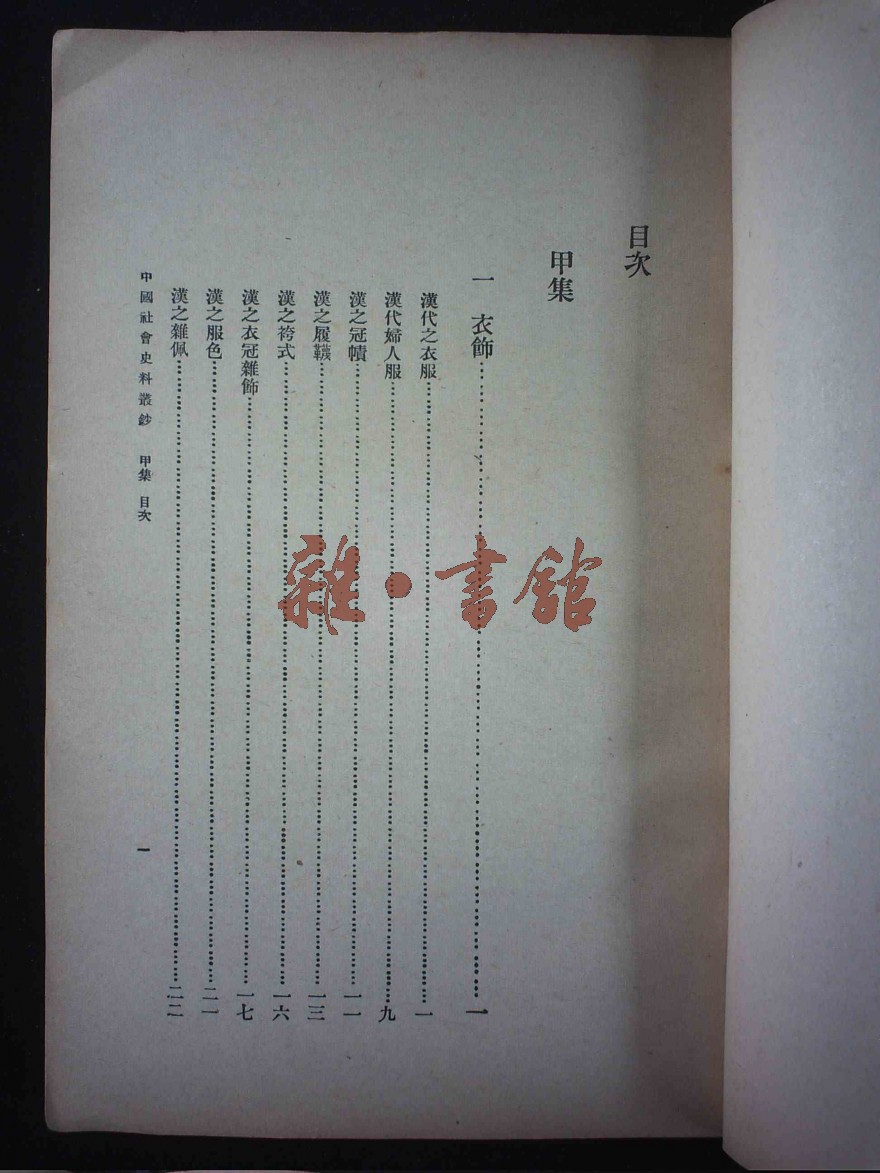 目次
甲集
一 衣飾……一
漢代之衣服……一
漢代婦人服……九
漢之冠幘……一一
漢之履韈……一三
漢之袴式……一六
漢之衣冠雜飾……一七
漢之服色……二一
漢之雜佩……二二
中國社會史料叢鈔 甲集 目次
一
雜·書館